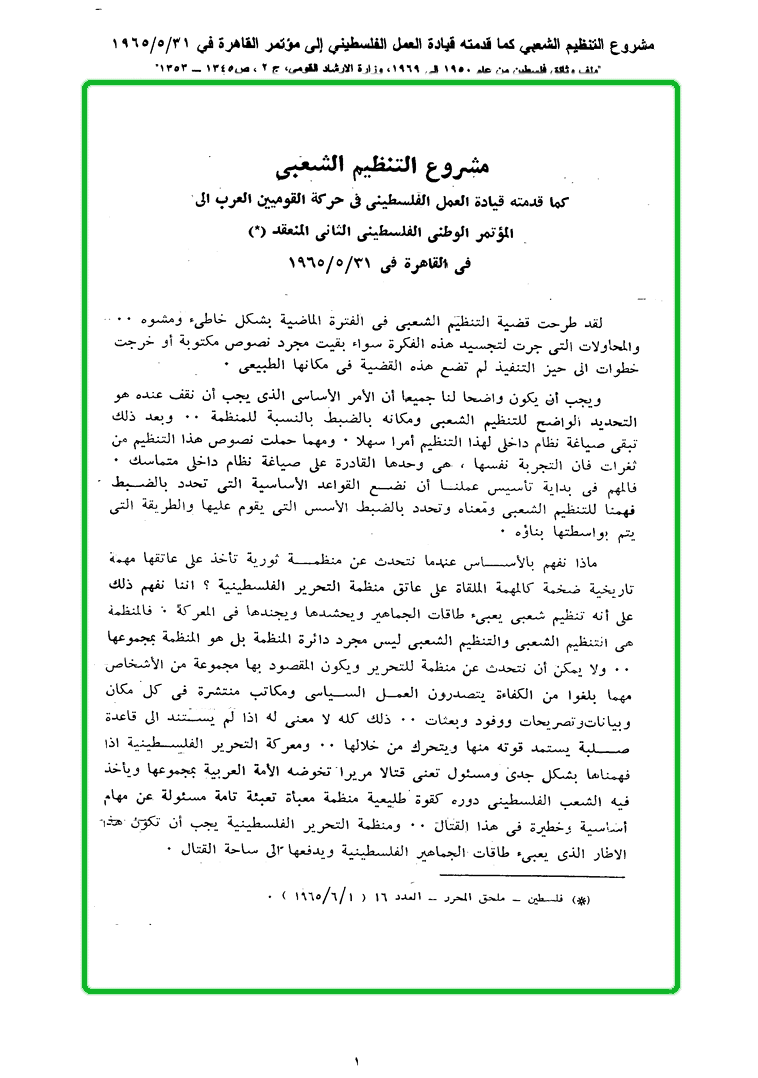 مشروع التنظيم الشعبي كما قدمته قيادة العمل الفلسطيني إلى مؤتمر القاهرة في ١٩٦٥/٥/٣١
"ملف وثائق فلسطين من عام ١٩٥٠ الى ١٩٦٩، وزارة الارشاد القومي، ج ٢ ، ص١٣٤٥ ــ ١٣٥٣"
مشروع التنظيم الشعبى
كما قدمته قيادة العمل الفلسطينى فى حركة القوميين العرب الى
المؤتمر الوطنى الفلسطينى الثانى المنعقد (*)
فى القاهرة فى ١٩٦٥/٥/٣١
لقد طرحت قضية التنظيم الشعبى فى الفترة الماضية بشكل خاطىء ومشوه ٠٠
والمحاولات التى جرت لتجسيد هذه الفكرة سواء بقيت مجرد نصوص مكتوبة أو خرجت
خطوات الى حيز التنفيذ لم تضع هذه القضية فى مكانها الطبيعى ٠
ويجب أن يكون واضحا لنا جميعا أن الأمر الأساسى الذى يجب أن نقف عنده هو
التحديد الواضح للتنظيم الشعبى ومكانه بالضبط بالنسبة للمنظمة ٠٠ وبعد ذلك
تبقى صياغة نظام داخلى لهذا التنظيم أمرا سهلا ٠ ومهما حملت نصوص هذا التنظيم من
ثغرات فان التجربة نفسها ، هى وحدها القادرة على صياغة نظام داخلى متماسك ٠
فالمهم فى بداية تأسيس عملنـا أن نضـع القواعد الأساسية التى تحدد بالضـبط
فهمنا للتنظيم الشعبى ومعناه وتحدد بالضبط الأسس التى يقوم عليها والطريقة التى
يتم بواسطتها بناؤه ٠
ماذا نفهم بالأســـاس عندما نتحدث عن منظمـــة ثورية تأخذ على عاتقها مهمة
تاريخية ضخمة كالمهمة الملقاة على عاتق منظمة التحرير الفلسطينية ؟ اننا نفهم ذلك
على أنه تنظيم شعبى يعبىء طاقات الجماهير ويحشدها ويجندها فى المعركة ٠ فالمنظمة
هى التنظيم الشعبى والتنظيم الشعبى ليس مجرد دائرة المنظمة بل هو المنظمة بمجموعها
٠٠ ولا يمكن أن نتحدث عن منظمة للتحرير ويكون المقصود بها مجموعة من الأشخاص
مهما بلغوا من الكفاءة يتصدرون العمـل السـياسى ومكاتب منتشرة فى كل مكان
وبيانات وتصريحات ووفود وبعثات ٠٠ ذلك كله لا معنى له اذا لم يسـتند الى قاعدة
صـــلبة يستمد قوته منها ويتحرك من خلالها ٠٠ ومعركة التحرير الفلسـطينية اذا
فهمناها بشكل جدى ومسئول تعنى قتالا مريرا تخوضه الأمة العربية بمجموعها ويأخذ
فيه الشعب الفلسطينى دوره كقوة طليعية منظمة معبأة تعبئة تامة مسئولة عن مهام
أساسية وخطيرة فى هذا القتال ٠٠ ومنظمة التحرير الفلسطينية يجب أن تكون هذا
الاطار الذى يعبىء طاقات الجماهير الفلسطينية ويدفعها الى ساحة القتال ٠
(*) فلسطين ــ ملحق المحرر ــ العدد ١٦ ( ١٩٦٥/٦/١ ) ٠
١